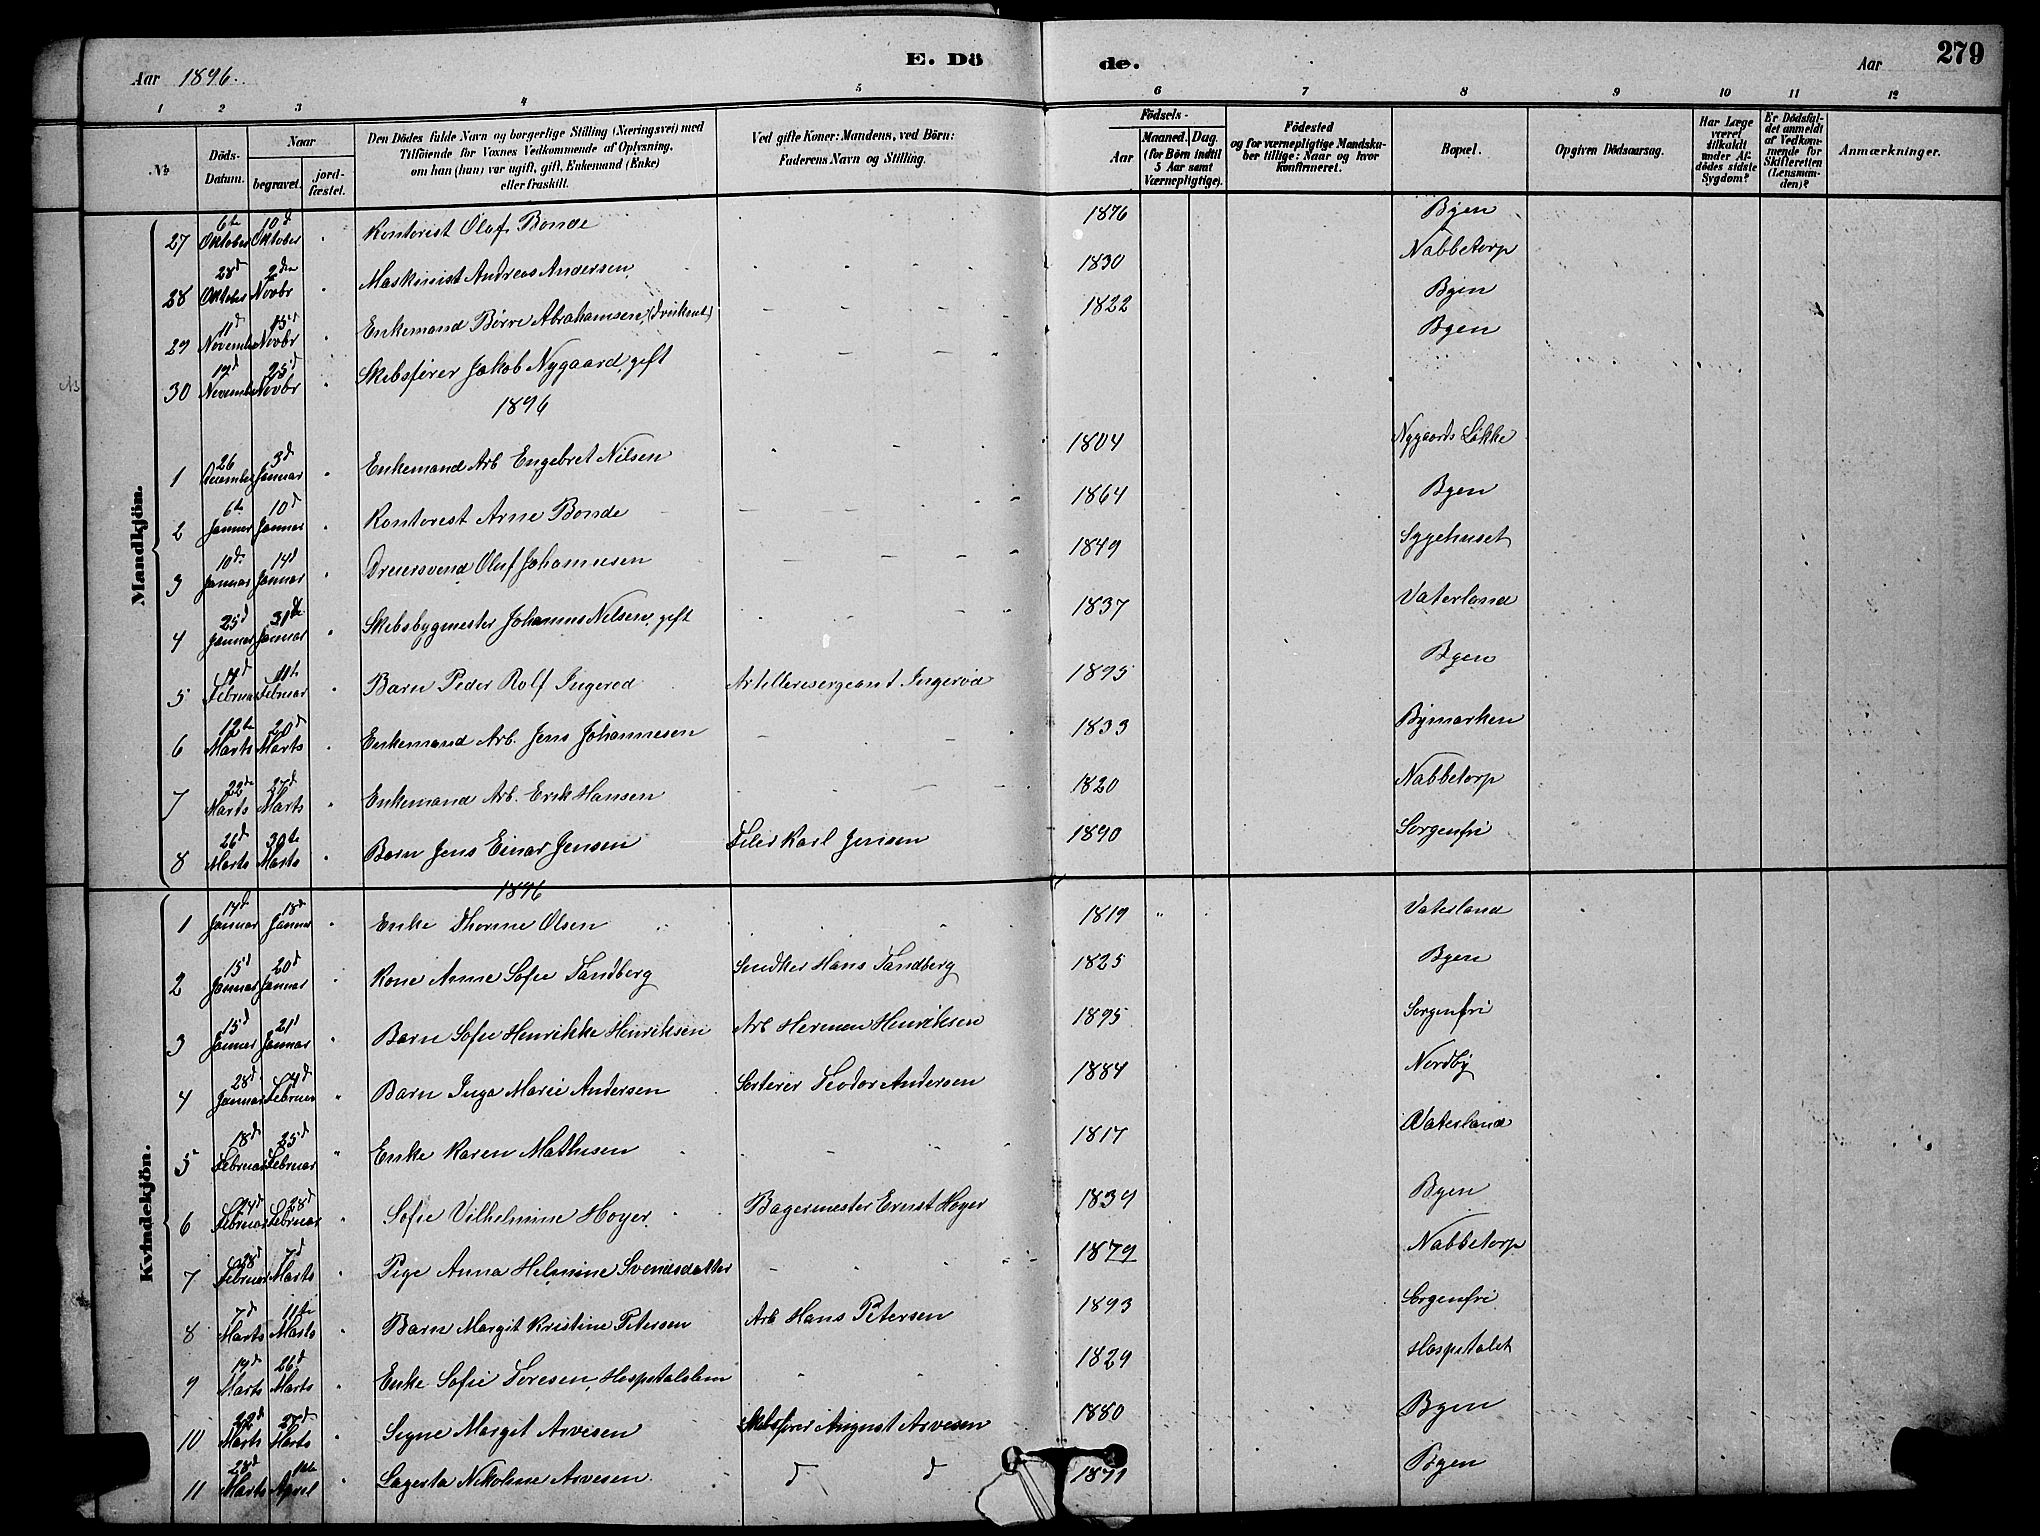 E. Dö de.
Aar 1896.
Aar
279
1 2 3 4 5 6 7 8 9 10 11 12
№
Döds-Datum.
Naar
begravet.
jord-fæstet.
Den Dödes fulde Navn og borgerlige Stilling (Næringsvei) med
Tilföiende for Voxnes Vedkommende af Oplysning,
om han (hun) var ugift, gift, Enkemand (Enke)
eller fraskilt.
Ved gifte Koner: Mandens, ved Börn:
Faderens Navn og Stilling.
Födsels-
Aar
Maaned. Dag.
(for Börn indtil
5 Aar samt
Værnepligtige).
Födested
og for værnepligtige Mandsku-
ber tillige: Naar og hvor
konfirmeret.
Bopæl.
Opgiven Dödsaarsag.
Har Læge
været
tilkaldt
under Af-
dödes sidste
Sygdom?
Er Dödsfal-
det anmeldt
af Vedkom-
mende for
Skifteretten
(Lensman-
den)?
Anmærkninger.
Mandkjön.
27 6te Oktober 10d Oktober " Kontorist Olaf Bonde 1876 Byen
28 28d Oktober 2den Novbr " Maskinist Andreas Andersen 1830 Nabbetorp
29 11d November 15d Novbr " Enkemand Börre Abrahamsen, 1822 Byen
30 November 25d Novbr " Skibsförer Jakob Nygaard, gift Byen
1896
1 26 December 3d Januar " Enkemand Arb Engebret Nilsen 1804 Nygaards Lökke
2 6te Januar 10d Januar " Kontorist Arne Bonde 1864 Byen
3 10de Januar 14d Januar " Dreiersvend Oluf Johannesen 1849 Sygehuset
4 25d Januar 31d Januar " Skibsbygmester Johannes Nilsen, gift 1837 Vaterland
5 Februar 11te Februar " Barn Peder Rolf Ingeröd Artillerisergeant Ingeröd 1895 Byen
6 12te Marts 20d Marts " Enkemand Arb. Jens Johannesen 1833 Bymarken
7 22de Marts 27d Marts " Enkemand Arb. Erik Hansen 1820 Nabbetorp
8 26d Marts 30te Marts " Barn Jens Einar Jensen Filer Karl Jensen 1890 Sorgenfri
Kvindekjön.
1896
1 Januar 18d Januar " Enke Thorine Olsen 1819 Vaterland
2 15d Januar 20d Januar " Kone Anne Sofie Sandberg Snedker Hans Sandberg 1825 Byen
3 15d Januar 21d Januar " Barn Sofie Henrikke Henriksen Arb Herman Henriksen 1895 Sorgenfri
4 28d Januar Februar " Barn Inga Marie Andersen Sorterer Teodor Andersen 1884 Nordby
5 18d Februar 25d Februar " Enke Karen Mathisen 1817 Vaterland
6 24d Februar 28d Februar " Sofie Vilhelmine Hoyer Bagermester Ernst Hoyer 1839 Byen
7 28d Februar 7d Marts " Pige Anna Helmine Svendsdatter 1879 Nabbetorp
8 7d Marts 11te Marts " Barn Margit Kristine Petersen Arb Hans Petersen 1893 Sorgenfri
9 Marts 26d Marts " Enke Sofie Toresen, Hospitalslem 1829 Hospitalet
10 22d Marts 27d Marts " Signe Margit Arvesen Skibsförer August Arvesen 1880 Byen
11 28d Marts 1te April " Lagerta Nikoline Arvesen d d 1871 Byen